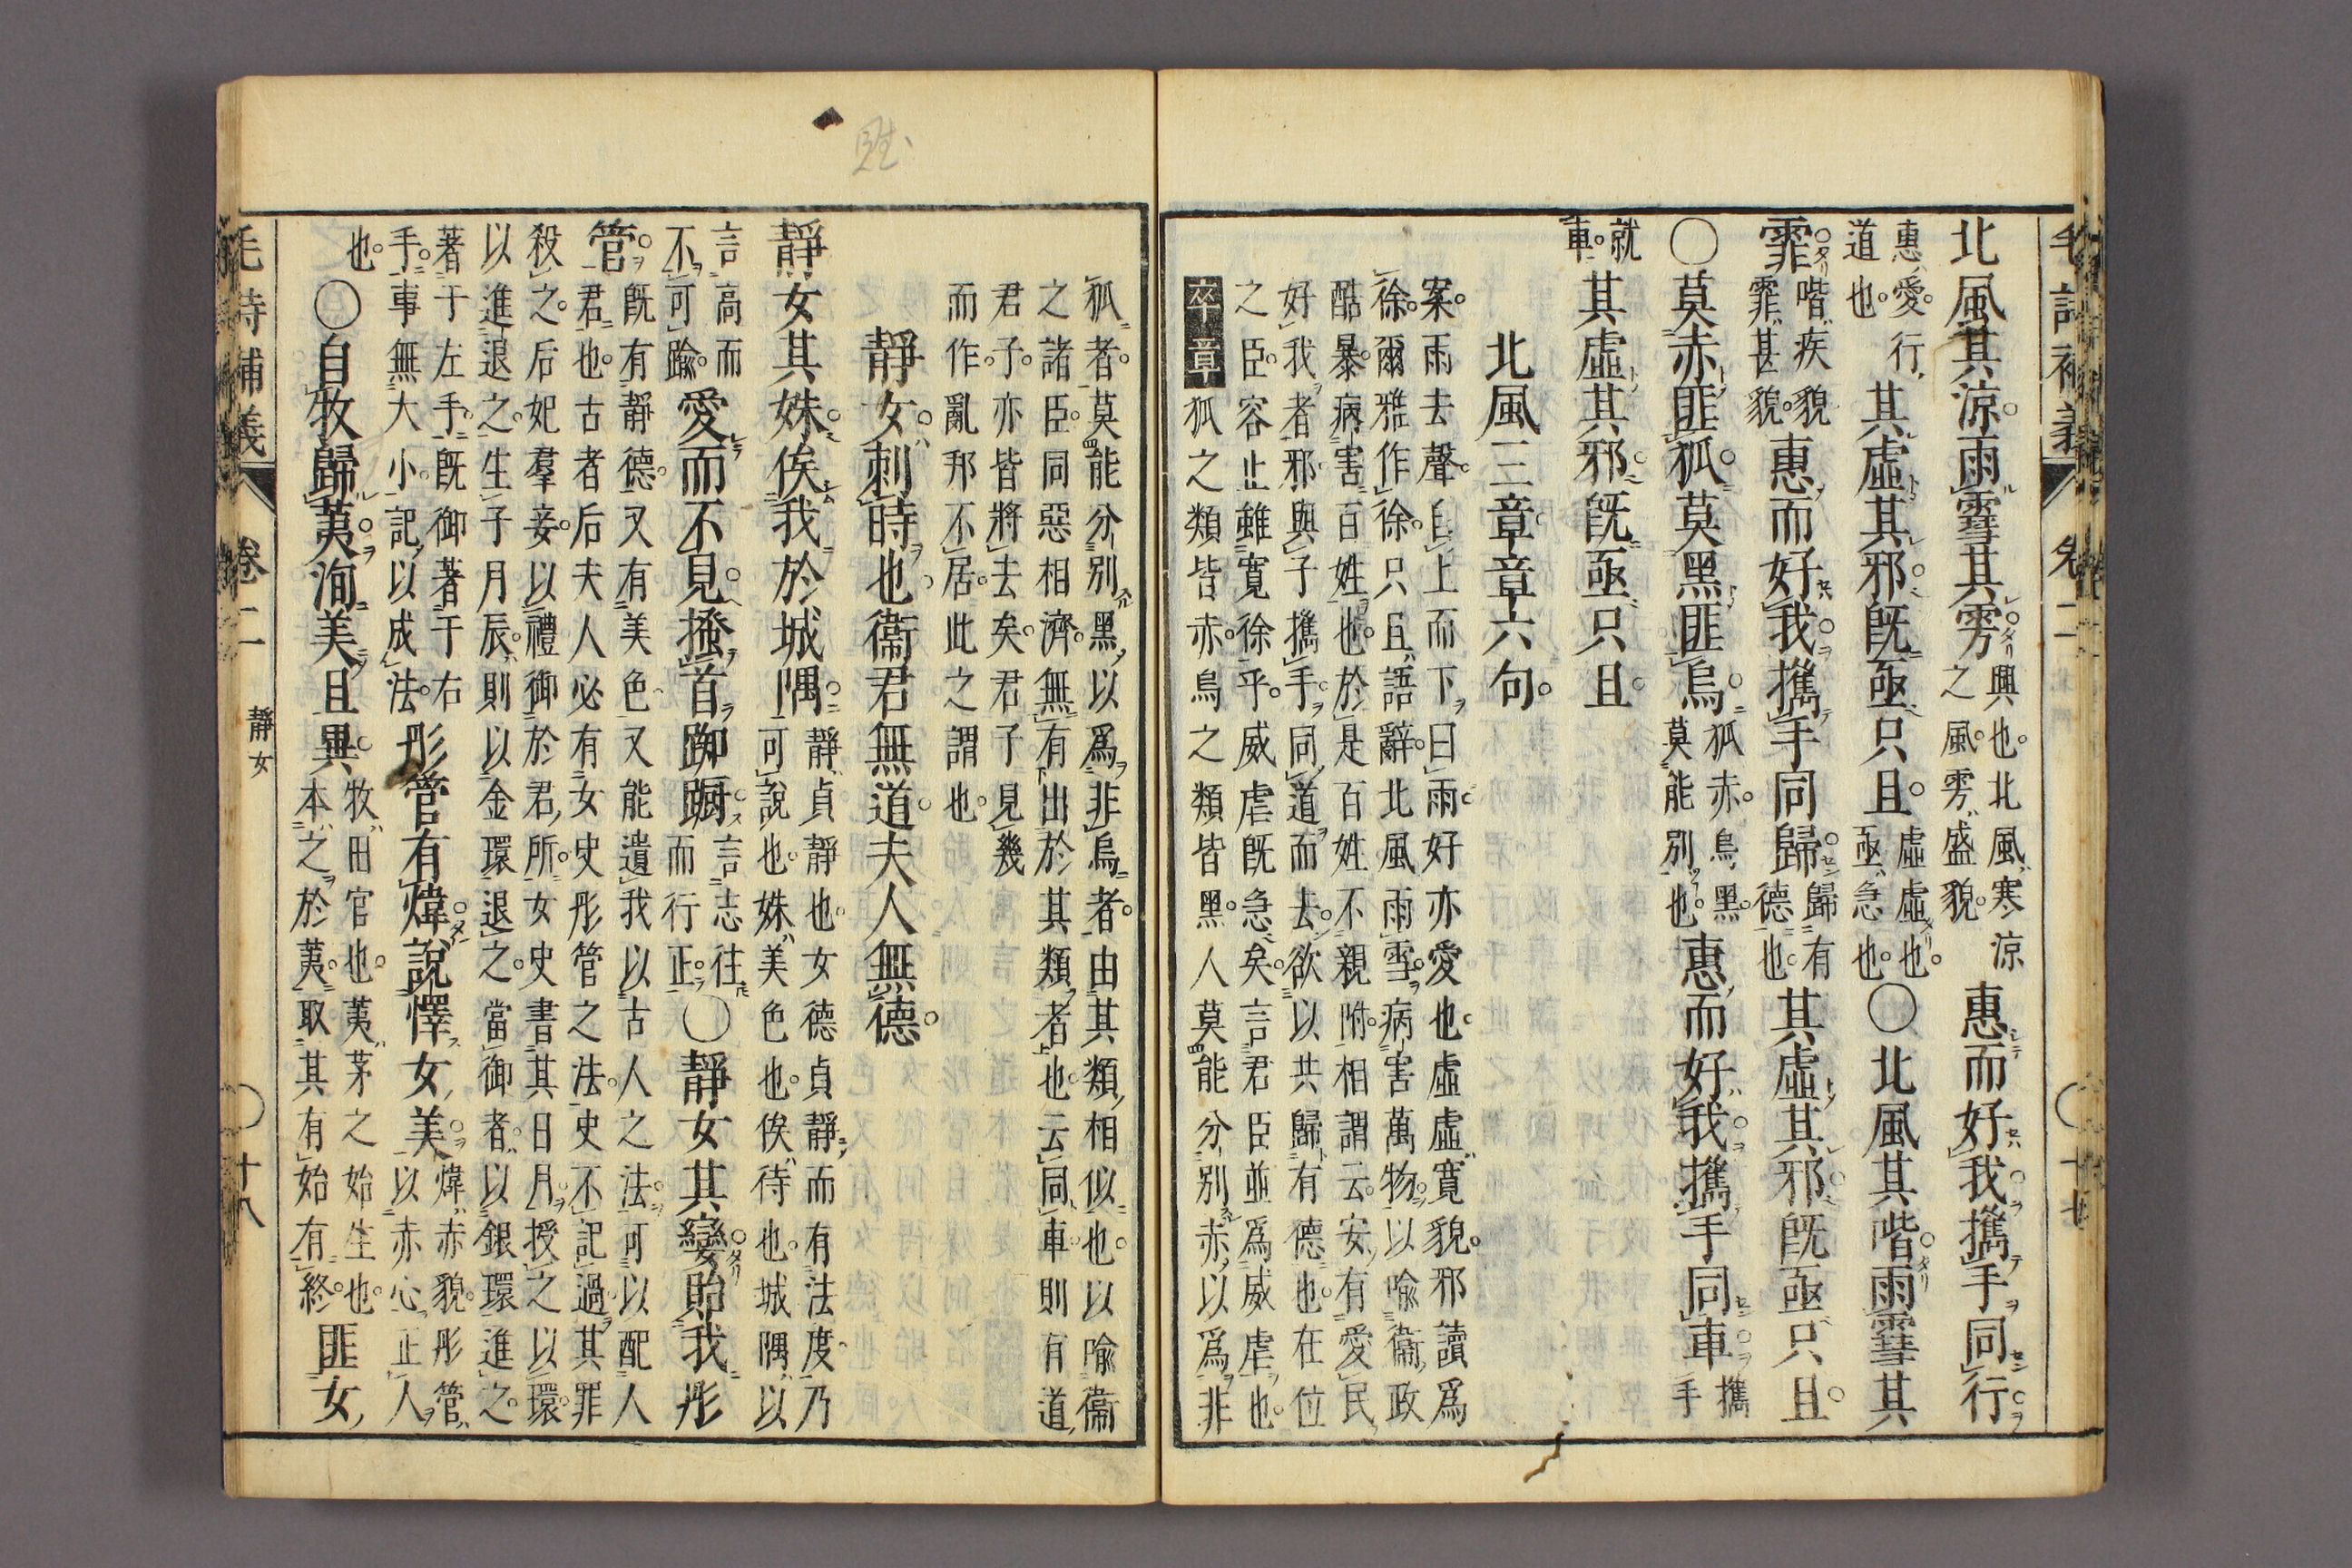 毛詩補義 卷二 十七
北風其涼雨雪其雱 興也北風寒涼
之風雱盛貌 惠而好我攜手同行
惠愛行
道也 其虛其邪既亟只且 虛虛也
亟急也 ○北風其喈雨雪其
霏 喈疾貌
霏甚貌 惠而好我攜手同歸 歸有
德也 其虛其邪既亟只且
○莫赤匪狐莫黑匪烏 狐赤烏黑
莫能別也 惠而好我攜手同車 攜
手
就
車 其虛其邪既亟只且
北風三章章六句
案雨去聲自上而下曰雨好亦愛也虛虛寬貌邪讀爲
徐爾雅作徐只且語辭北風雨雪病害萬物以喩衞政
酷暴病害百姓也於是百姓不親附相謂云安有愛民
好我者邪與子攜手同道而去欲以共歸有德也在位
之臣容止雖寬徐乎威虐既急矣言君臣並爲威虐也
卒章狐之類皆赤烏之類皆黑人莫能分別赤以爲非
狐者莫能分別黑以爲非烏者由其類相似也以喩衞
之諸臣同惡相濟無有出於其類者也云同車則有道
君子亦皆將去矣君子見幾
而作亂邦不居此之謂也
靜女刺時也衞君無道夫人無德
靜女其姝俟我於城隅 靜貞靜也女德貞靜而有法度乃
可說也姝美色也俟待也城隅以
言高而
不可踰 愛而不見搔首踟躕 言志往
而行正 ○靜女其孌貽我彤
管 既有靜德又有美色又能遺我以古人之法可以配人
君也古者后夫人必有女史彤管之法史不記過其罪
殺之后妃羣妾以禮御於君所女史書其日月授之以環
以進退之生子月辰則以金環退之當御者以銀環進之
著于左手既御著于右
手事無大小記以成法 彤管有煒說懌女美 煒赤貌彤管
以赤心正人
也 ○自牧歸荑洵美且異 牧田官也荑茅之始生也
本之於荑取其有始有終 匪女
毛詩補義 卷二 靜女 十八